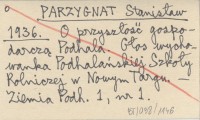 PARZYGNAT Stanisław
1936. O przyszłość gospo-
darczą Podhala. Głos wycho-
wanka Podhalańskiej Szkoły
Rolniczej w Nowym Targu. —
Ziemia Podh. 1, nr 1.